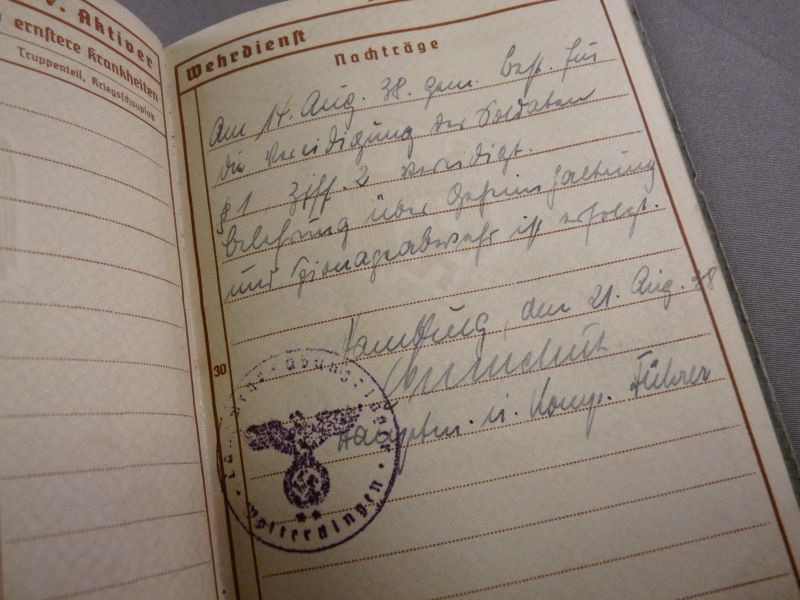 v. Aktiver
Wehrdienst
ernstere Krankheiten
Truppenteil, Kriegsschauplatz
Nachträge
Am 14. Aug. 38. gem. Best. für
die Vereidigung der Soldaten
§ 1 Ziff. 2 vereidigt.
Belehrung über Geheimhaltung
und Spionageabwehr ist erfolgt.
Hamburg, den 21. Aug. 38
Hauptm. u. Komp. Führer
30